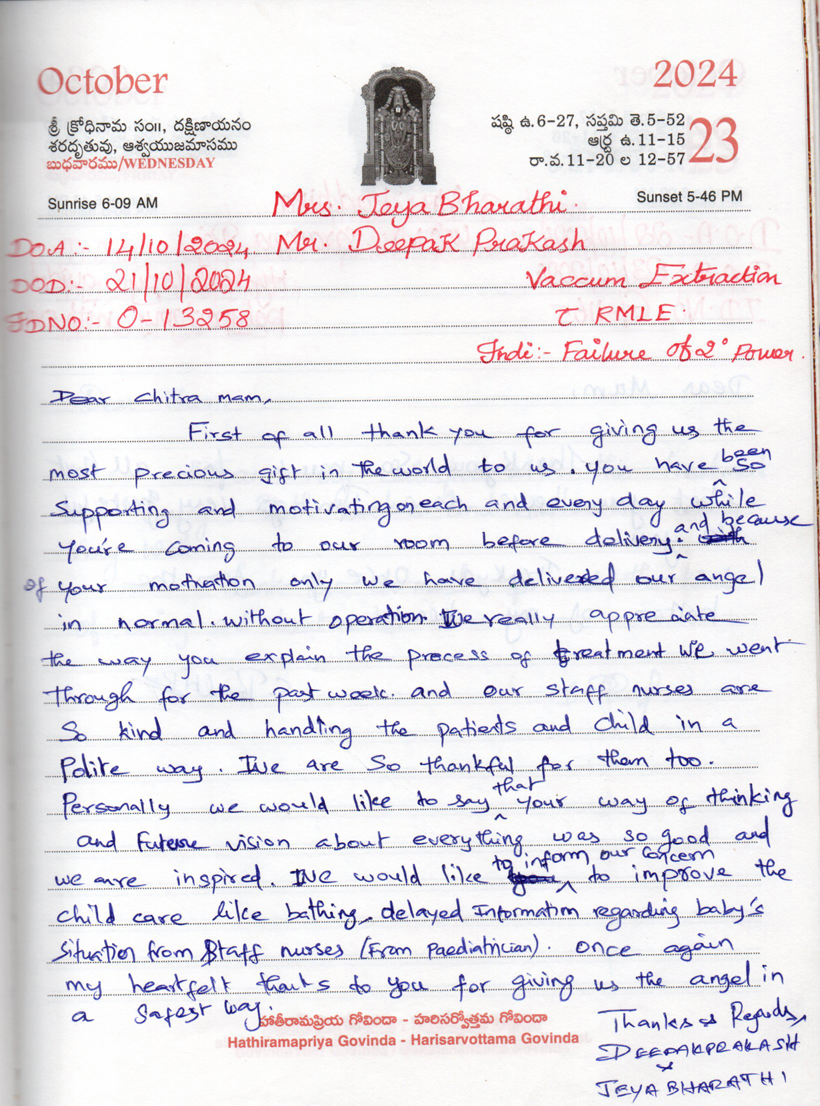 October
2024
శ్రీ క్రోధినామ సం॥, దక్షిణాయనం
శరదృతువు, ఆశ్వయుజమాసము
బుధవారము/WEDNESDAY
షష్ఠి ఉ.6-27, సప్తమి తె.5-52
ఆర్ద్ర ఉ.11-15
రా.వ.11-20 ల 12-57
23
Sunrise 6-09 AM
Sunset 5-46 PM
Mrs. Jeya Bharathi.
DOA:- 14/10/2024 Mr. Deepak Prakash
DOD:- 21/10/2024 Vaccum Extraction
IDNO:- O-13258 c̄ RMLE.
Indi:- Failure of 2° Power.
Dear Chitra mam,
First of all thank you for giving us the
most precious gift in the world to us. you have been so
supporting and motivating on each and every day while
you're coming to our room before delivery. and because
of your motivation only we have delivered our angel
in normal. without operation. We really appreciate
the way you explain the process of treatment we went
through for the past week. and our staff nurses are
so kind and handling the patients and child in a
polite way. We are so thankful for them too.
Personally we would like to say that your way of thinking
and future vision about everything was so good and
we are inspired. We would like to inform our concern to improve the
child care like bathing, delayed Information regarding baby's
situation from staff nurses (From paediatrician). once again
my heartfelt thanks to you for giving us the angel in
a safest way.
హాతీరామప్రియ గోవిందా - హరిసర్వోత్తమ గోవిందా
Hathiramapriya Govinda - Harisarvottama Govinda
Thanks & Regards,
DEEPAKPRAKASH
&
JEYABHARATHI